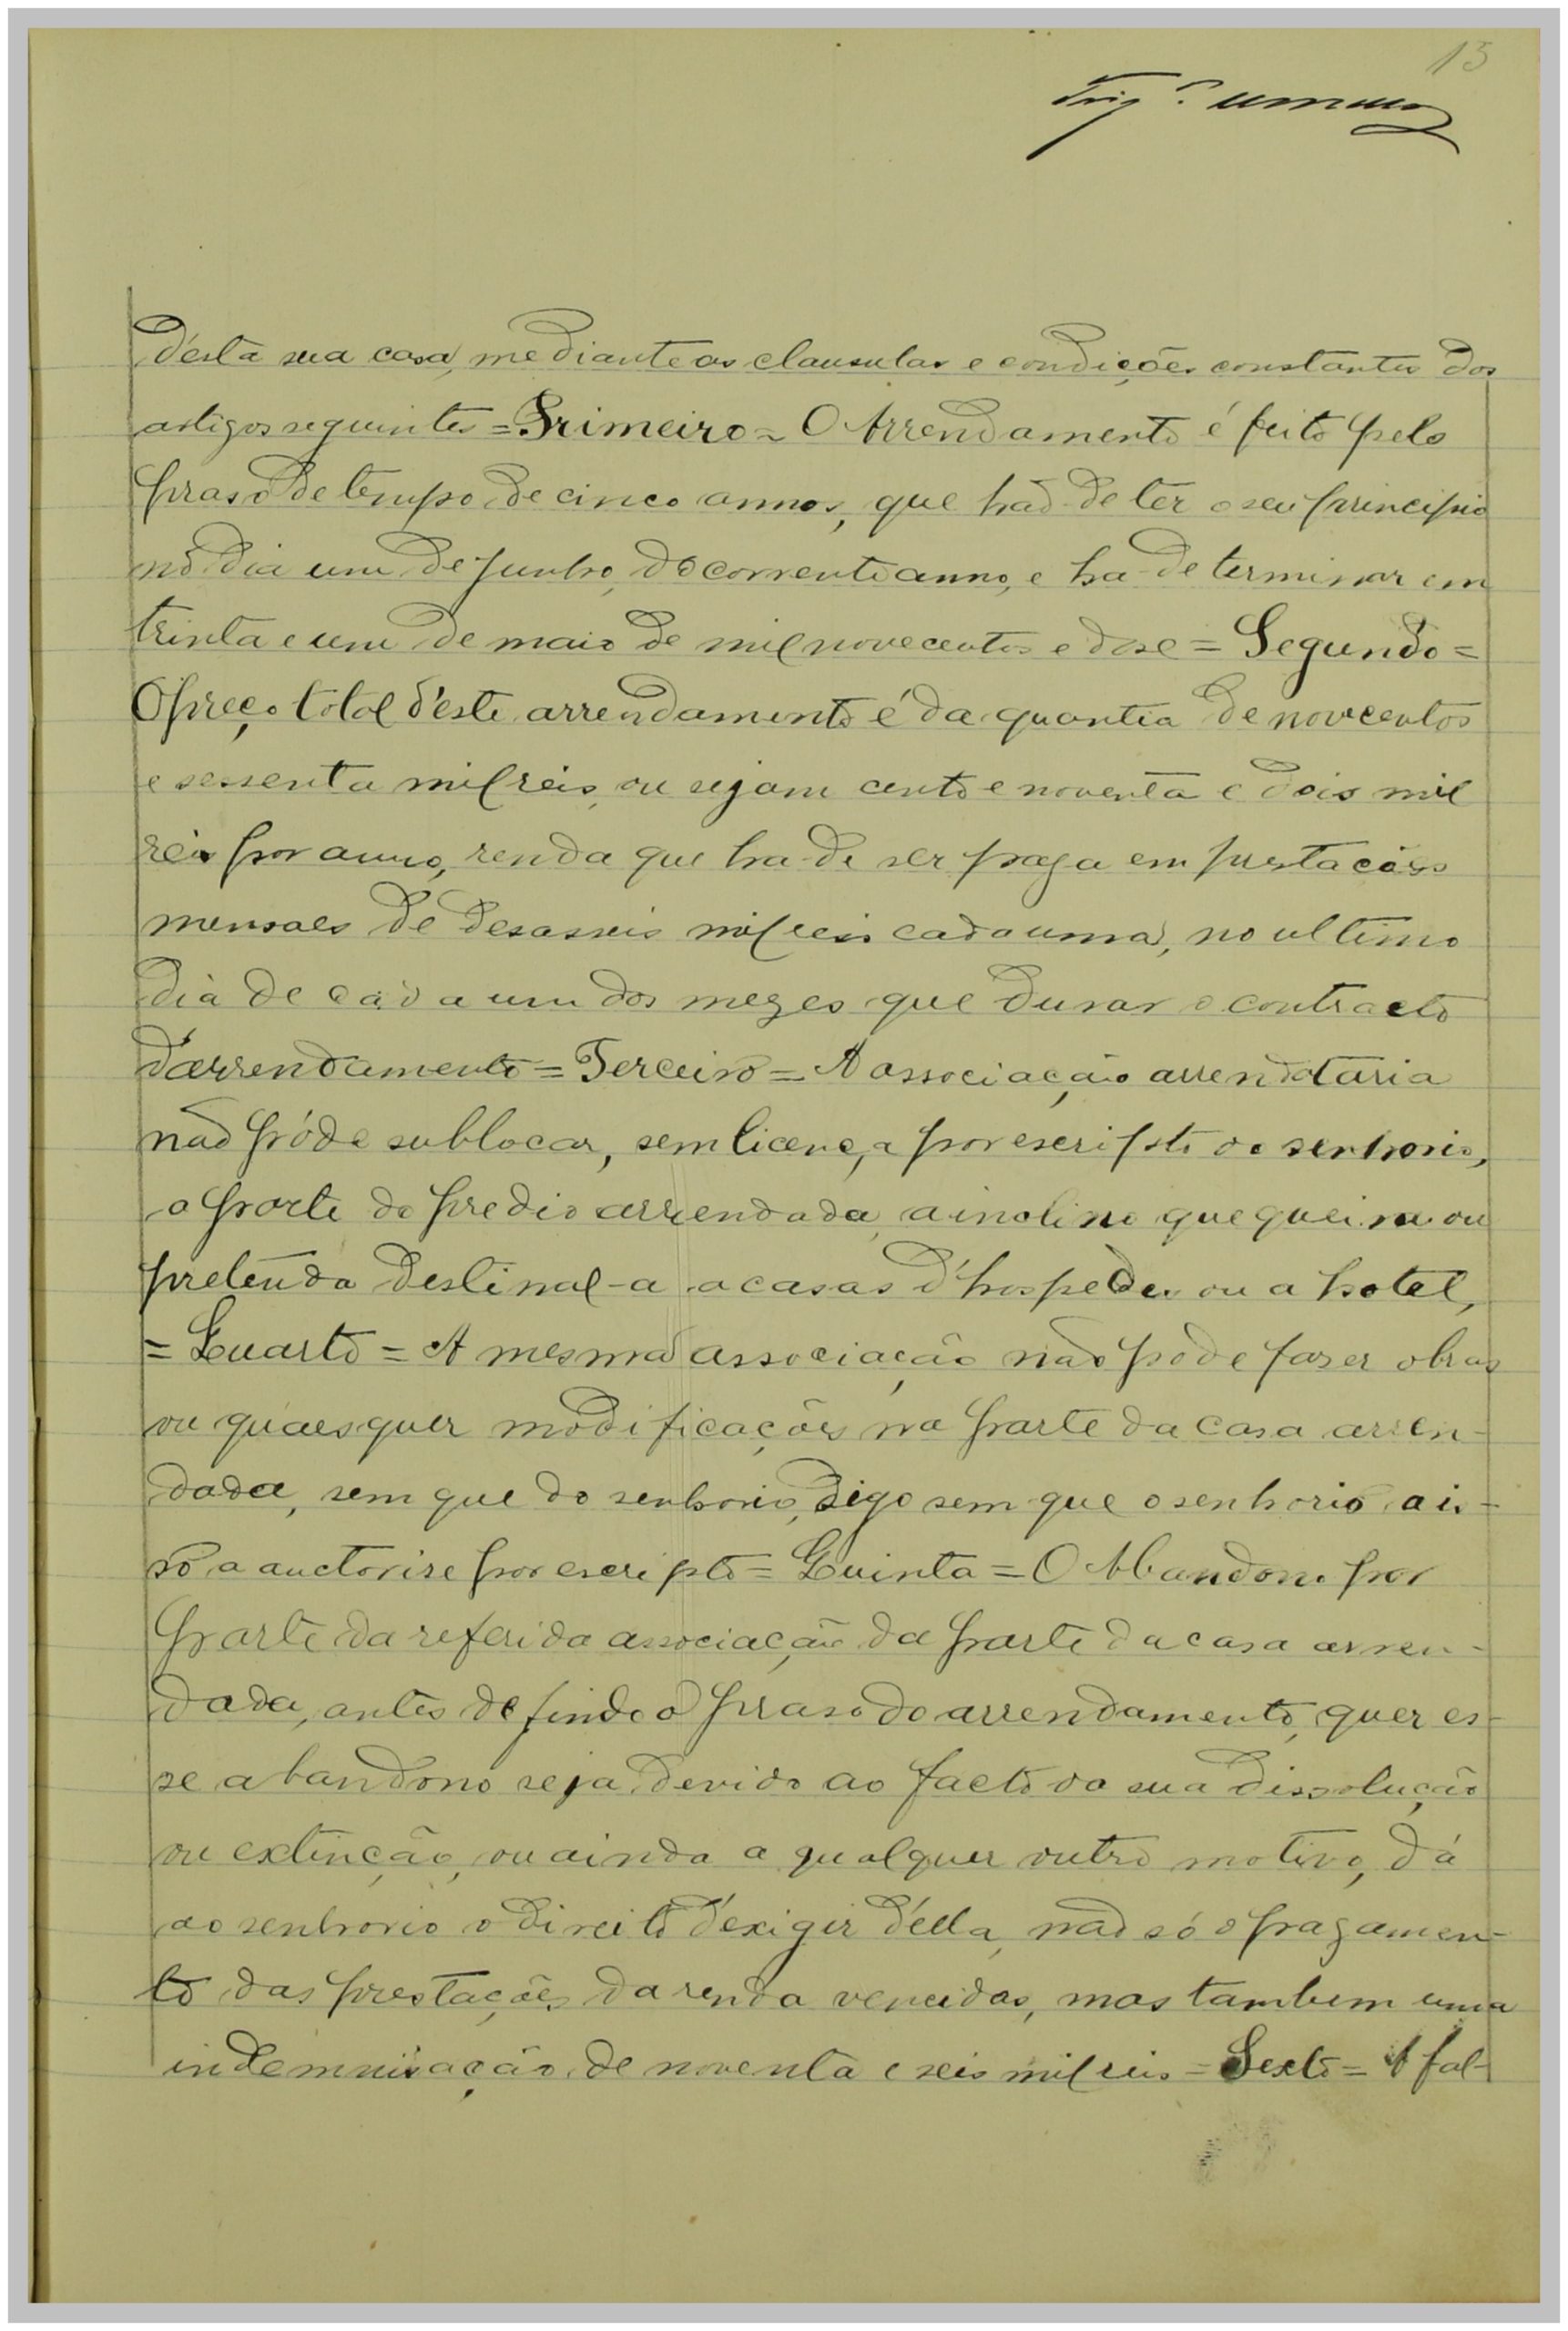 13
d'esta sua casa, mediante as clausulas e condições constantes dos
artigos seguintes = Primeiro = O Arrendamento é feito pelo
praso de tempo de cinco annos, que hão-de ter o seu principio
no dia um de Junho, do corrente anno, e ha-de terminar em
trinta e um de maio de mil novecentos e dose = Segundo =
O preço total d'este arrendamento é da quantia de novecentos
e sessenta mil reis, ou sejam cento e noventa e dois mil
reis por anno, renda que ha-de ser paga em prestações
mensaes de desasseis mil reis cada uma, no ultimo
dia de cada um dos mezes que durar o contracto
d'arrendamento = Terceiro = A associação arrendataria
não póde sublocar, sem licença por escripto do senhorio,
a parte do predio arrendada, ainda que queira ou
pretenda destinal-a a casas d'hospedes ou a hotel,
= Quarto = A mesma associação não pode faser obras
ou quaesquer modificações na parte da casa arren-
dada, sem que do senhorio, digo sem que o senhorio a is-
so a auctorise por escripto = Quinta = O Abandono por
parte da referida associação da parte da casa arren-
dada, antes de findo o praso do arrendamento, quer es-
se abandono seja devido ao facto da sua dissolução
ou extincção, ou ainda a qualquer outro motivo, dá
ao senhorio o direito d'exigir d'ella, não só o pagamen-
to das prestações da renda vencidas, mas tambem uma
indemnisação de noventa e seis mil reis = Sexto = A fal-